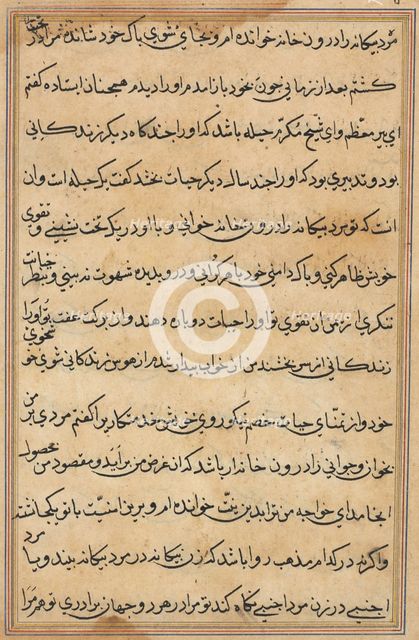 مرد بیکانه را درون خانه خوانده ام و بجای شوی پاک خود شانده مرا در
کشتم بعد از زمانی چون بخود باز آمدم او را دیدم همچنان ایستاده کفتم
ای پیر معظم وای شیخ مکرم حیله باشد که او را چند کاه دیکر زندکانی
بود و تدبیری بود که او را چند سال دیکر حیات بخشد کفت یک حیله است و آن
آنست که تو مرد بیکانه را درون خانه خوانی و با او در یک تخت نشینی و تقوی
خویش ظاهر کنی و پاک دامنی خود باهر کردانی و در وی بدیده شهوت نه بینی و بنظر خیانت
ننکری از یمن آن تقوی تو او را حیات دوباره دهند و از برکت عفت تو او را
زندکانی از سر بخشند من از خواب بیدار شدم از هوس زندکانی شوی خو
خود و از تمنای حیات خصم نیکو روی خویش خدمتکار را کفتم مردی بر من
بخوان و جوانی را درون خانه آر باشد که آن غرض من برآید و مقصود من محصول
انجامد ای خواجه من ترا بدین نیت خوانده ام و بدین امنیت با تو یکجا نشته
واکرنه در کدام مذهب روا باشد که زن بیکانه در مرد بیکانه بیند و یا مرد
اجنبی در زن مرد اجنبی نکاه کند تو مرا در هر دو جهان برادری تو هم مرا
Heritage
Heritage
Heritage